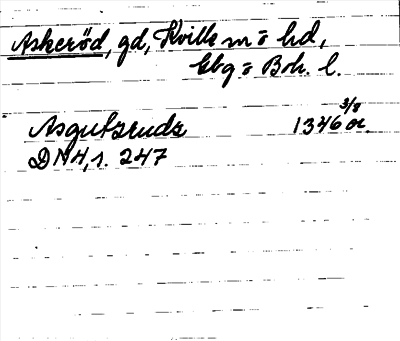 Askeröd, gd, Kville sn o hd,
Gbg o Boh. l.
Asgutzrudz 1346 3/8 or.
DN 4, s. 247